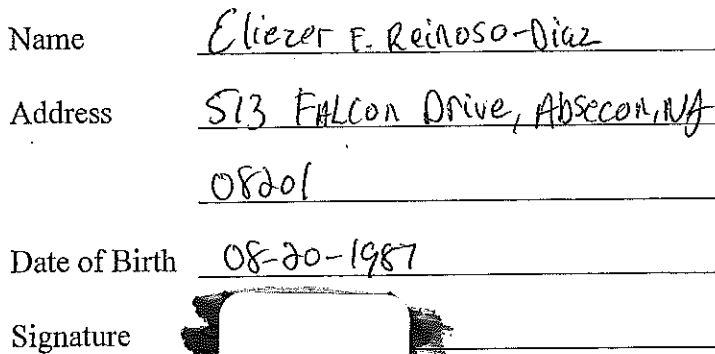 Name Eliezer E. Reinoso-Diaz
Address 513 FALCon Drive, Absecon, NJ
08201
Date of Birth 08-20-1987
Signature